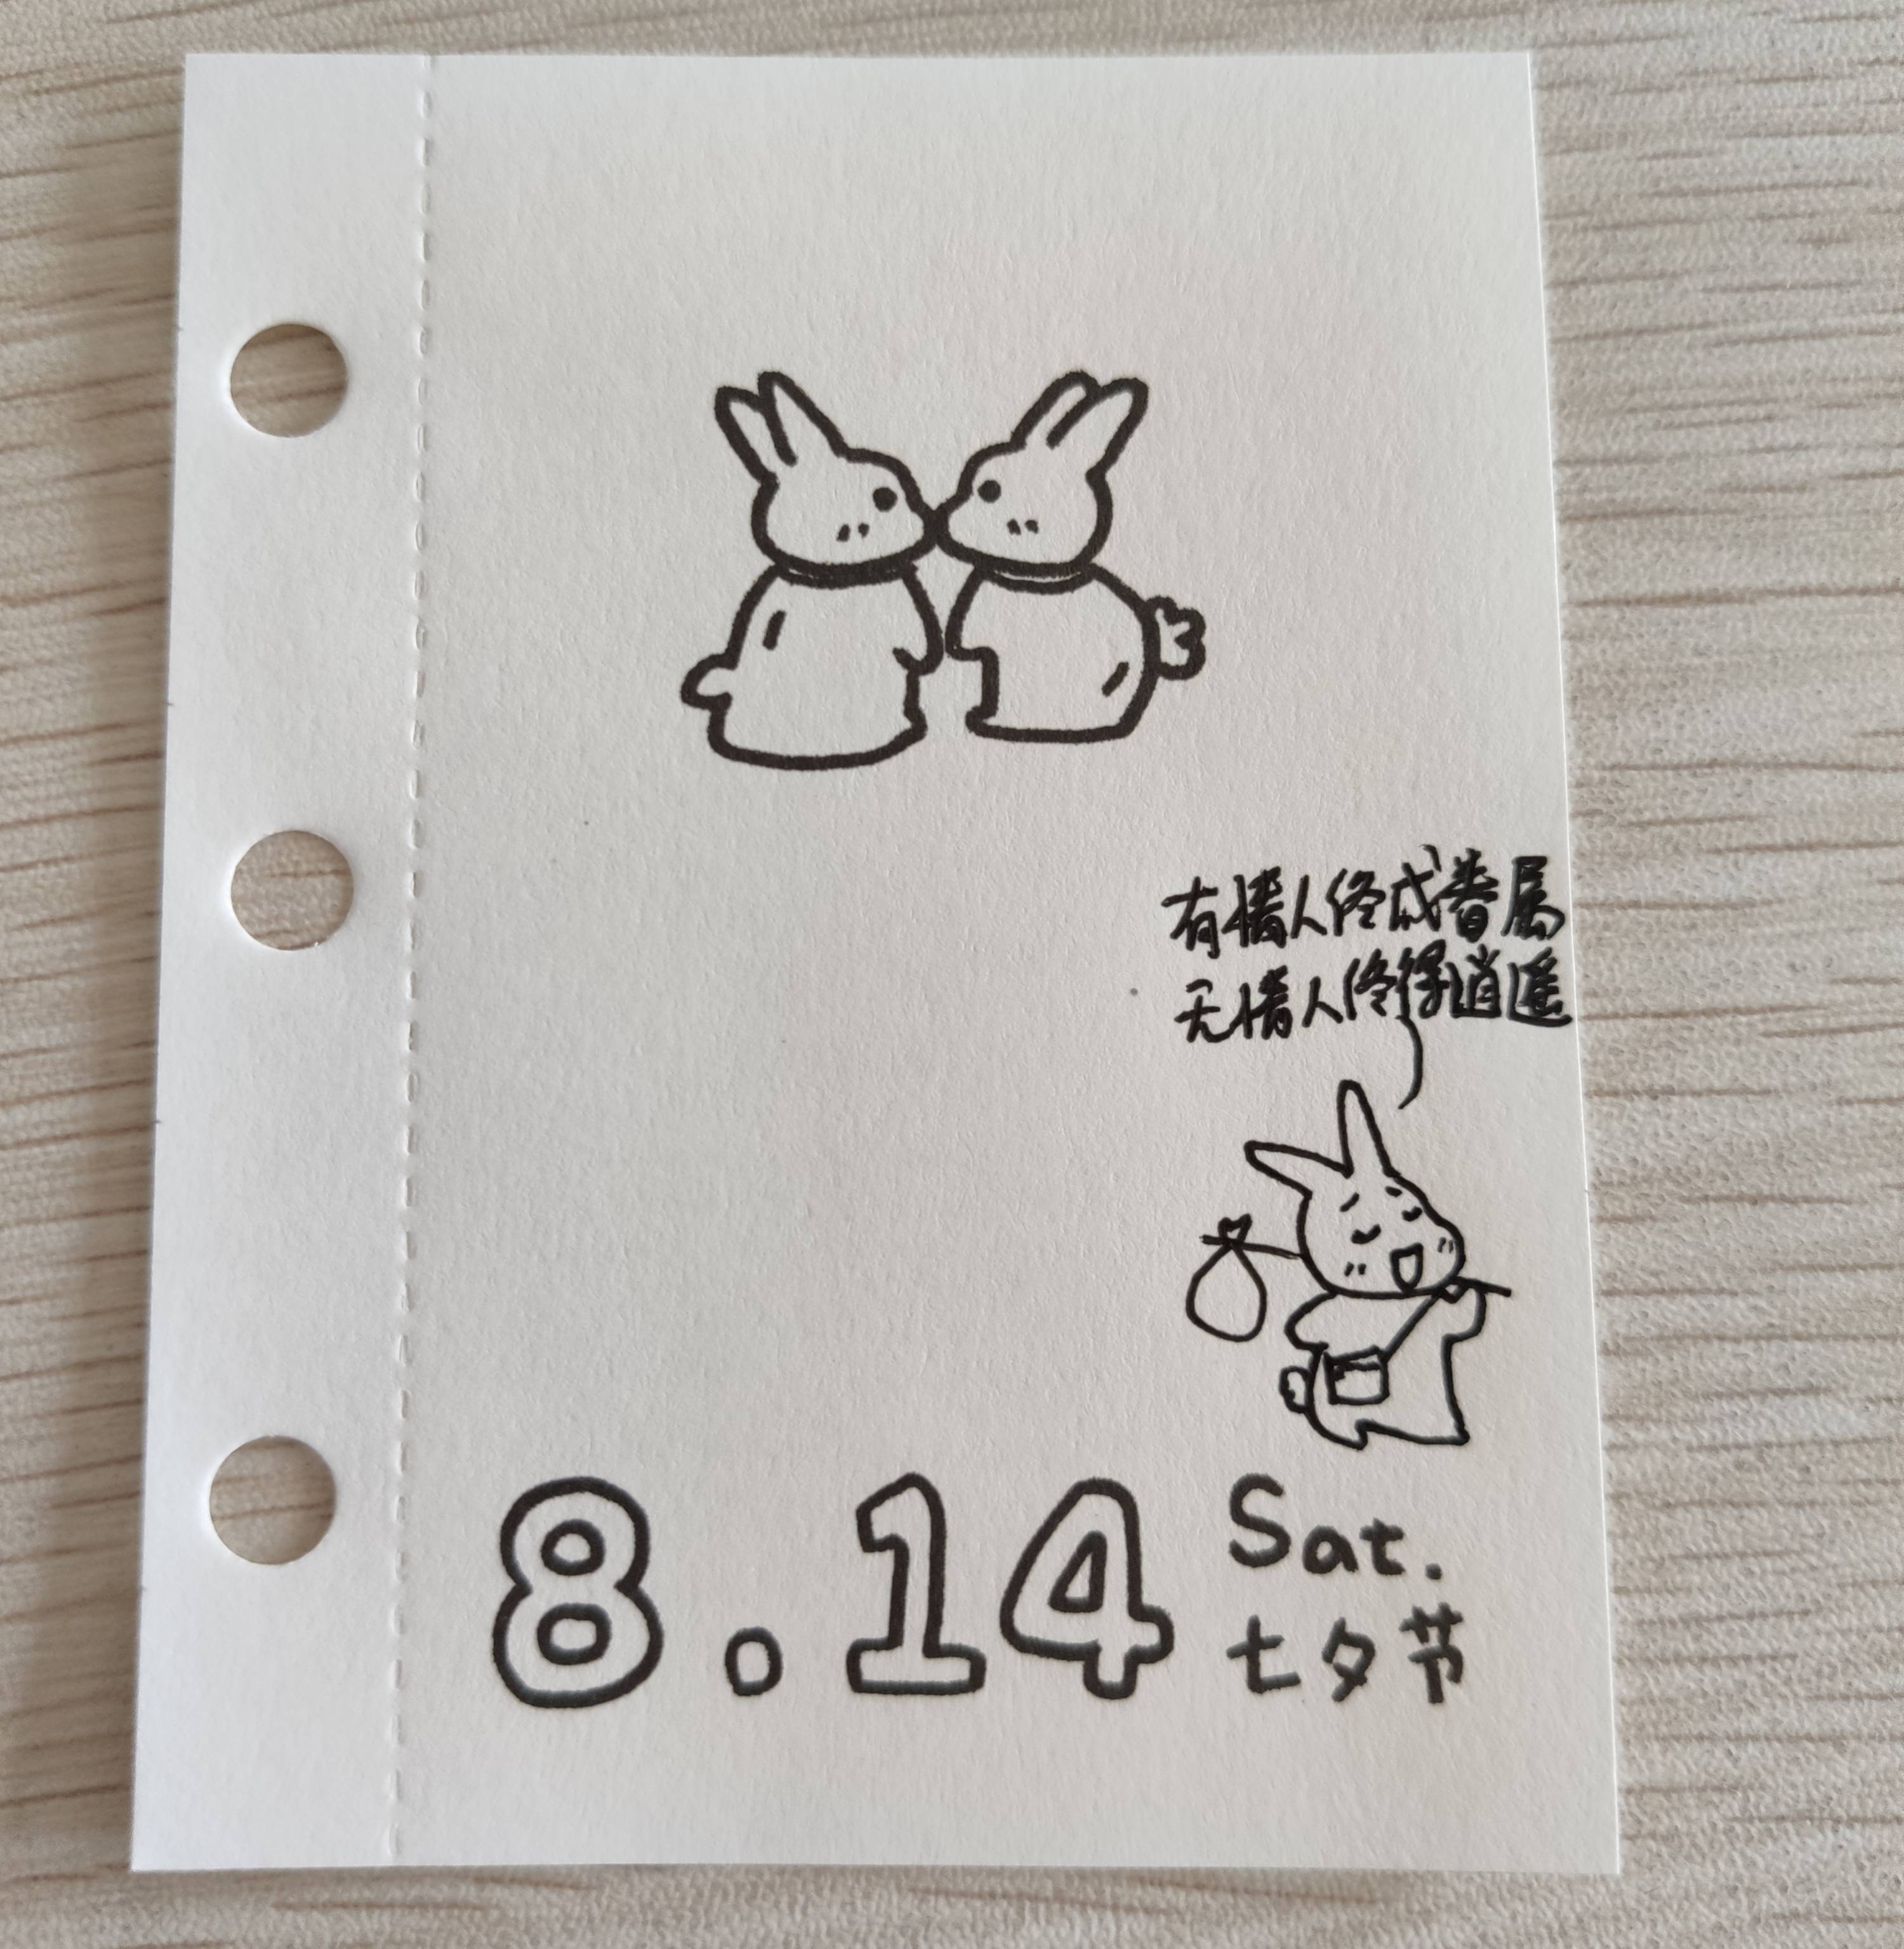 有情人终成眷属
无情人终得逍遥
8.14 Sat.
七夕节